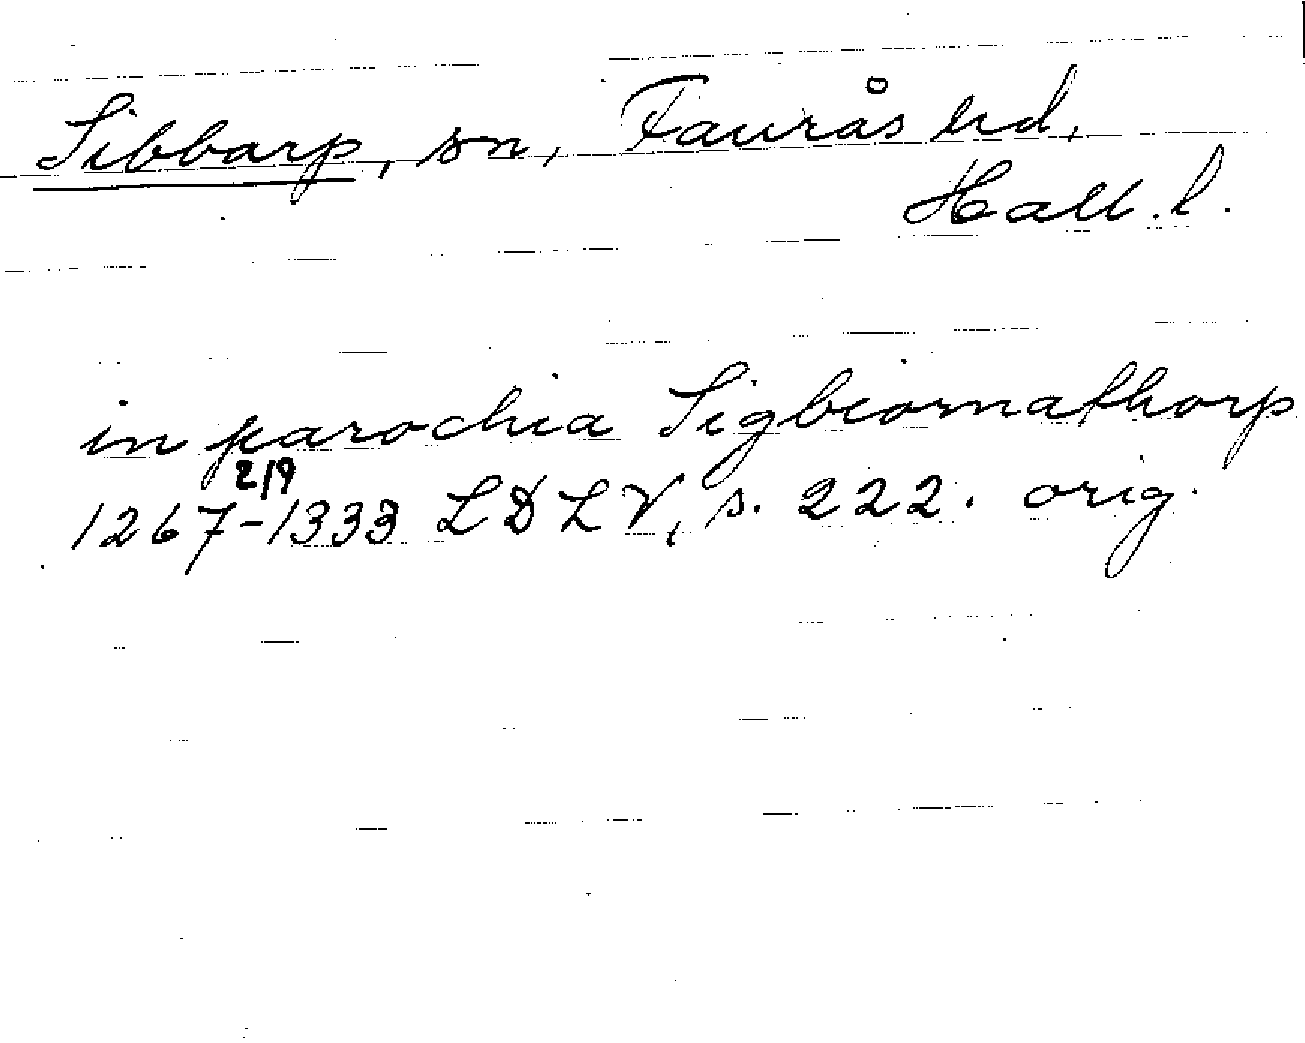 Sibbarp, sn, Faurås hd,
Hall. l.
in parochia Sigbiornathorp
2/9
1267-1333 LDLV, s. 222. orig.